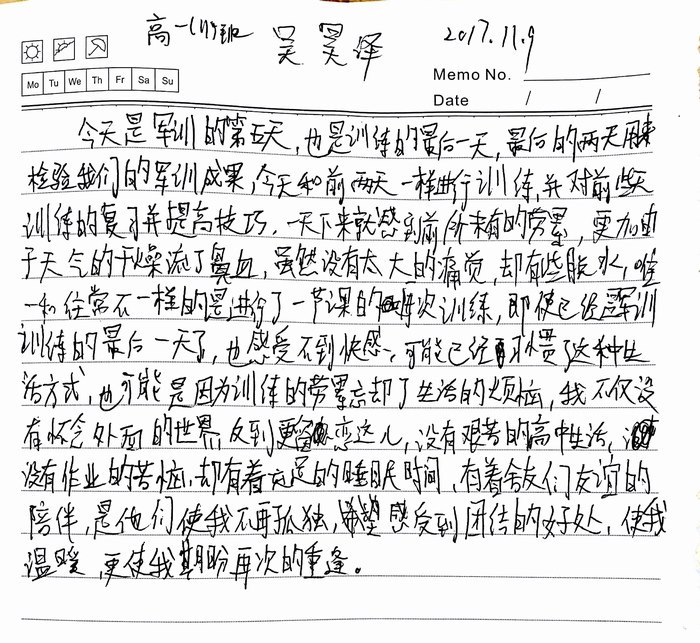 高一(11)班 吴昊泽 2017.11.9
Memo No.
Mo Tu We Th Fr Sa Su
Date / /
今天是军训的第五天,也是训练的最后一天,最后的两天用来
检验我们的军训成果,今天和前两天一样进行训练,并对前些天
训练的复习并提高技巧,一天下来就感到前所未有的劳累,更加由
于天气的干燥流了鼻血,虽然没有太大的痛觉,却有些脱水,唯
一和往常不一样的是进行了一节课的训练,即使已经军训
训练的最后一天了,也感受不到快感,可能已经习惯了这种生
活方式,也可能是因为训练的劳累忘却了生活的烦恼,我不仅没
有怀念外面的世界,反到更留恋这儿,没有艰苦的高中生活,
没有作业的苦恼,却有着充足的睡眠时间,有着舍友们友谊的
陪伴,是他们使我不再孤独,感受到团结的好处,使我
温暖,更使我期盼再次的重逢。